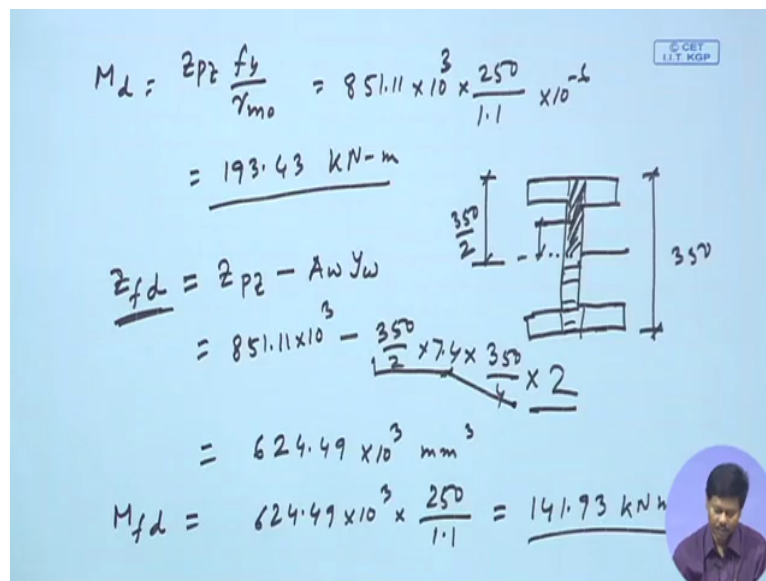 M_d = Z_pz f_y/γ_mo = 851.11 × 10^3 × 250/1.1 × 10^-6
© CET
I.I.T. KGP
= 193.43 kN-m
350/2
350
Z_fd = Z_pz - A_w y_w
= 851.11 × 10^3 - 350/2 × 7.4 × 350/4 × 2
= 624.49 × 10^3 mm^3
M_fd = 624.49 × 10^3 × 250/1.1 = 141.93 kN